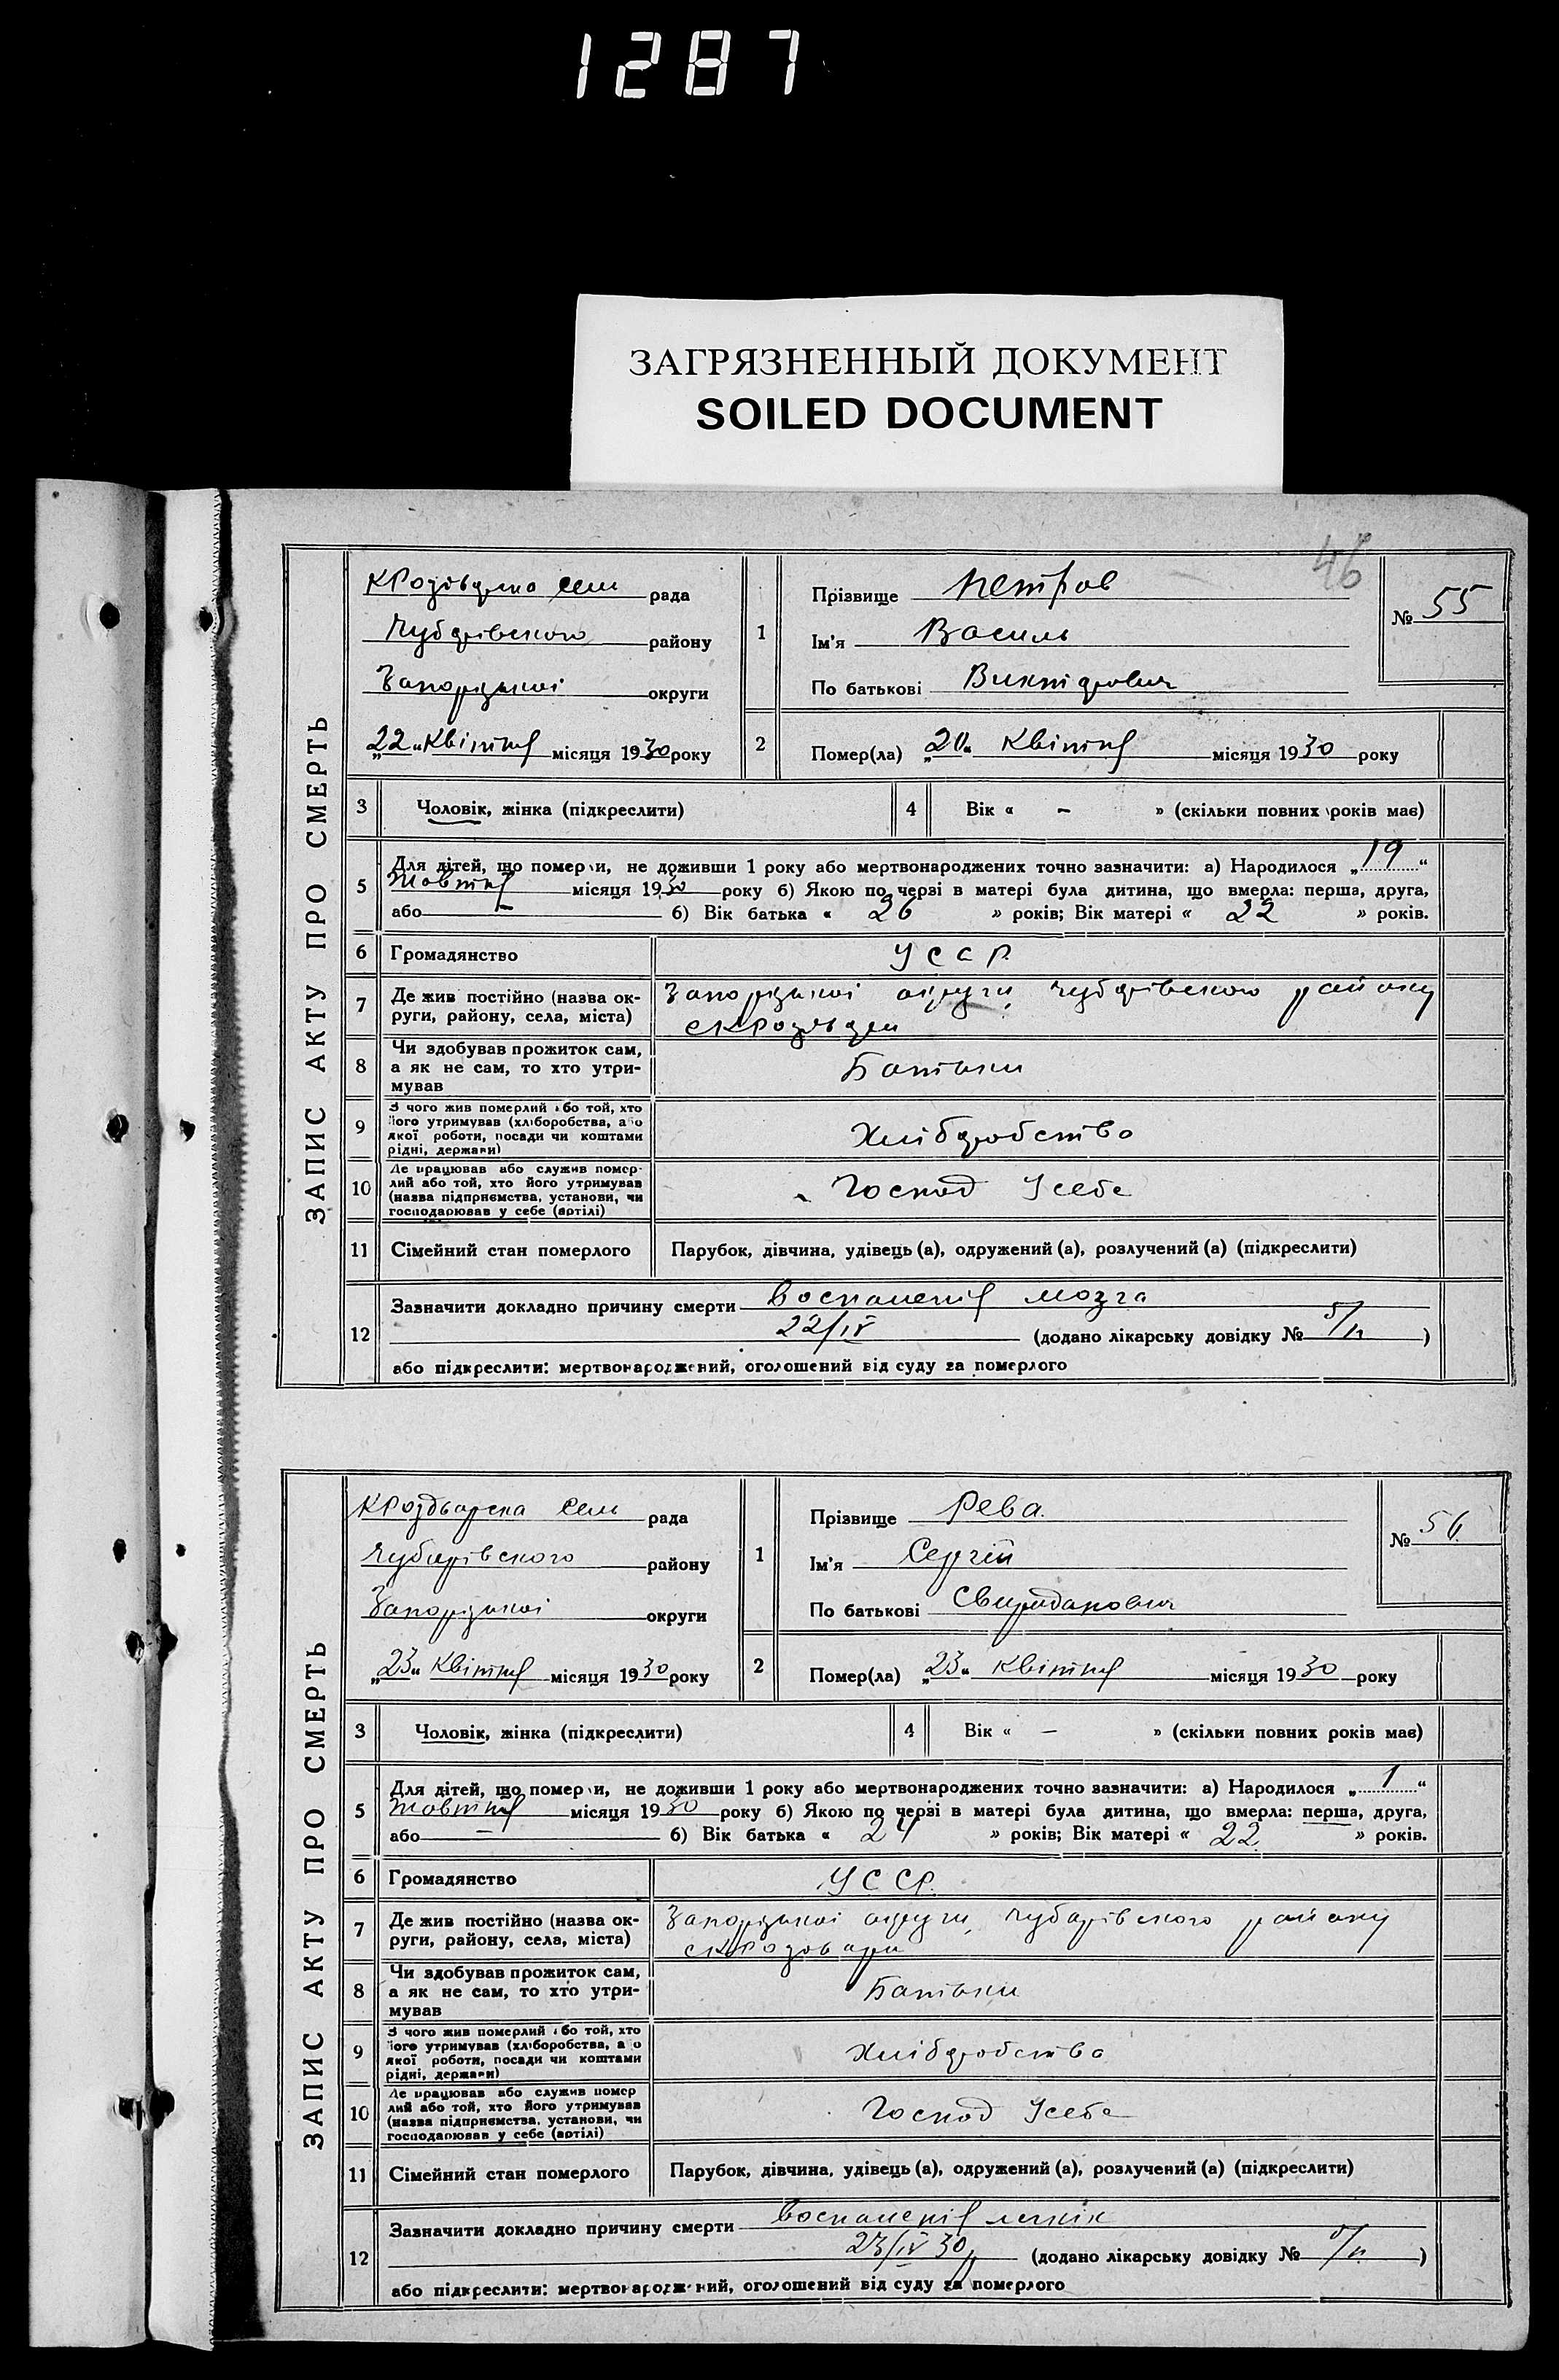 1287
ЗАГРЯЗНЕННЫЙ ДОКУМЕНТ
SOILED DOCUMENT
46
ЗАПИС АКТУ ПРО СМЕРТЬ
рада
Чубарівського району
Запорізької округи
„22“ Квітня місяця 1930 року
1
Прізвище Петров
Ім'я Василь
По батькові Викторович
№ 55
2
Помер(ла) „20“ Квітня місяця 1930 року
3 Чоловік, жінка (підкреслити)
4 Вік « – » (скільки повних років має)
5 Для дітей, що померли, не доживши 1 року або мертвонароджених точно зазначити: а) Народилося „19“
Жовтня місяця 1930 року б) Якою по черзі в матері була дитина, що вмерла: перша, друга,
або б) Вік батька « 26 » років; Вік матері « 22 » років.
6 Громадянство УССР
7 Де жив постійно (назва ок-
руги, району, села, міста)
Запорізької округи, Чубарівського району
8 Чи здобував прожиток сам,
а як не сам, то хто утри-
мував
Батьки
9 З чого жив померлий або той, хто
його утримував (хліборобства, або
якої роботи, посади чи коштами
рідні, держави)
Хліборобство
10 Де працював або служив помер-
лий або той, хто його утримував
(назва підприємства, установи, чи
господарював у себе (артілі)
Господ Усебе
11 Сімейний стан померлого Парубок, дівчина, удівець (а), одружений (а), розлучений (а) (підкреслити)
12 Зазначити докладно причину смерти Воспаления мозга
22/IV (додано лікарську довідку № )
або підкреслити: мертвонароджений, оголошений від суду за померлого
ЗАПИС АКТУ ПРО СМЕРТЬ
рада
Чубарівського району
Запорізької округи
„23“ Квітня місяця 1930 року
1
Прізвище Рева.
Ім'я Сергій
По батькові Свириданович
№ 56
2
Помер(ла) „23“ Квітня місяця 1930 року
3 Чоловік, жінка (підкреслити)
4 Вік « – » (скільки повних років має)
5 Для дітей, що померли, не доживши 1 року або мертвонароджених точно зазначити: а) Народилося „1“
Жовтня місяця 1930 року б) Якою по черзі в матері була дитина, що вмерла: перша, друга,
або б) Вік батька « 24 » років; Вік матері « 22 » років.
6 Громадянство УССР.
7 Де жив постійно (назва ок-
руги, району, села, міста)
Запорізької округи, Чубарівського району
8 Чи здобував прожиток сам,
а як не сам, то хто утри-
мував
Батьки
9 З чого жив померлий або той, хто
його утримував (хліборобства, або
якої роботи, посади чи коштами
рідні, держави)
Хліборобство
10 Де працював або служив помер
лий або той, хто його утримував
(назва підприємства, установи, чи
господарював у себе (артілі)
Господ Усебе
11 Сімейний стан померлого Парубок, дівчина, удівець (а), одружений (а), розлучений (а) (підкреслити)
12 Зазначити докладно причину смерти Воспаления легкік
23/IV 30 (додано лікарську довідку № )
або підкреслити: мертвонароджений, оголошений від суду за померлого